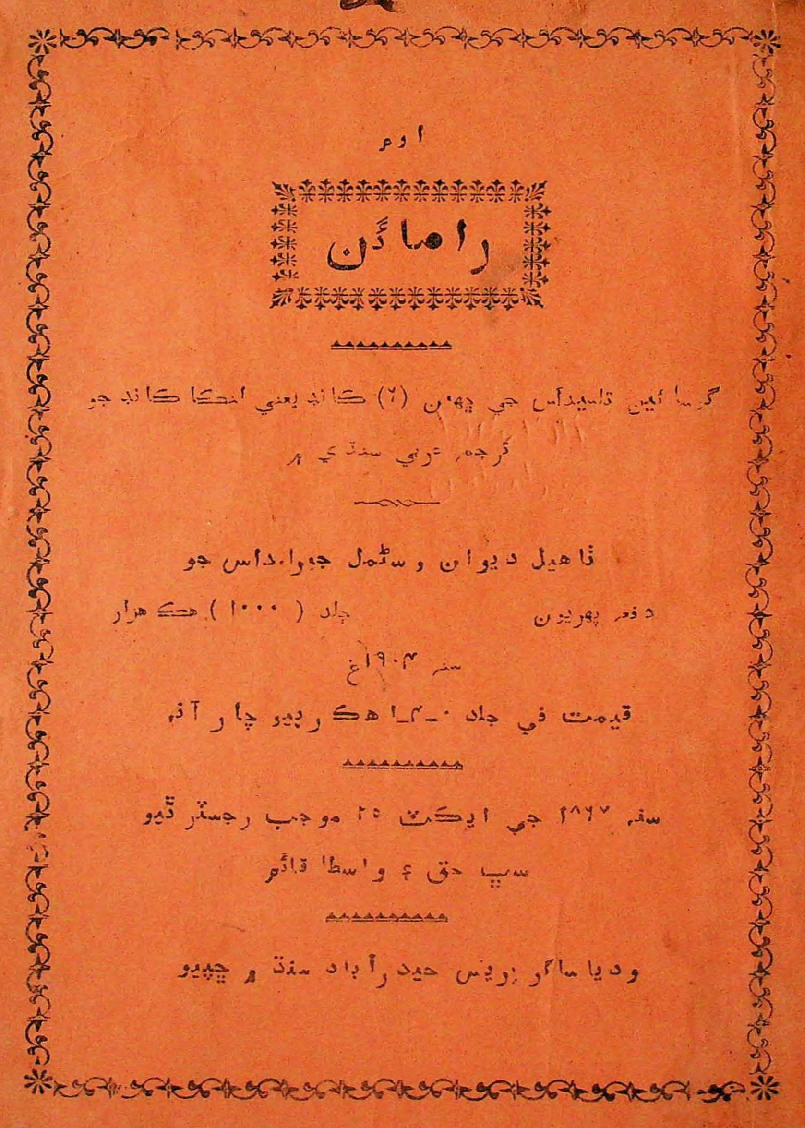 اوم
رامائڻ
گوسائين تلسيداس جي ڇهين (٦) ڪانڊ يعني لنڪا ڪانڊ جو
ترجمو عربي سنڌي ۾
ٺاهيل ديوان وسڻمل جيرامداس جو
دفعہ پهريون جلد (١٠٠٠) هڪ هزار
سنہ ١٩٠٤ع
قيمت في جلد ٠ـ٤ـ١ هڪ رپيو چار آنہ
سنہ ١٨٦٧ جي ايڪٽ ٢٥ موجب رجسٽر ٿيو
سڀ حق ۽ واسطا قائم
وديا ساگر پريس حيدرآباد سنڌ ۾ ڇپيو